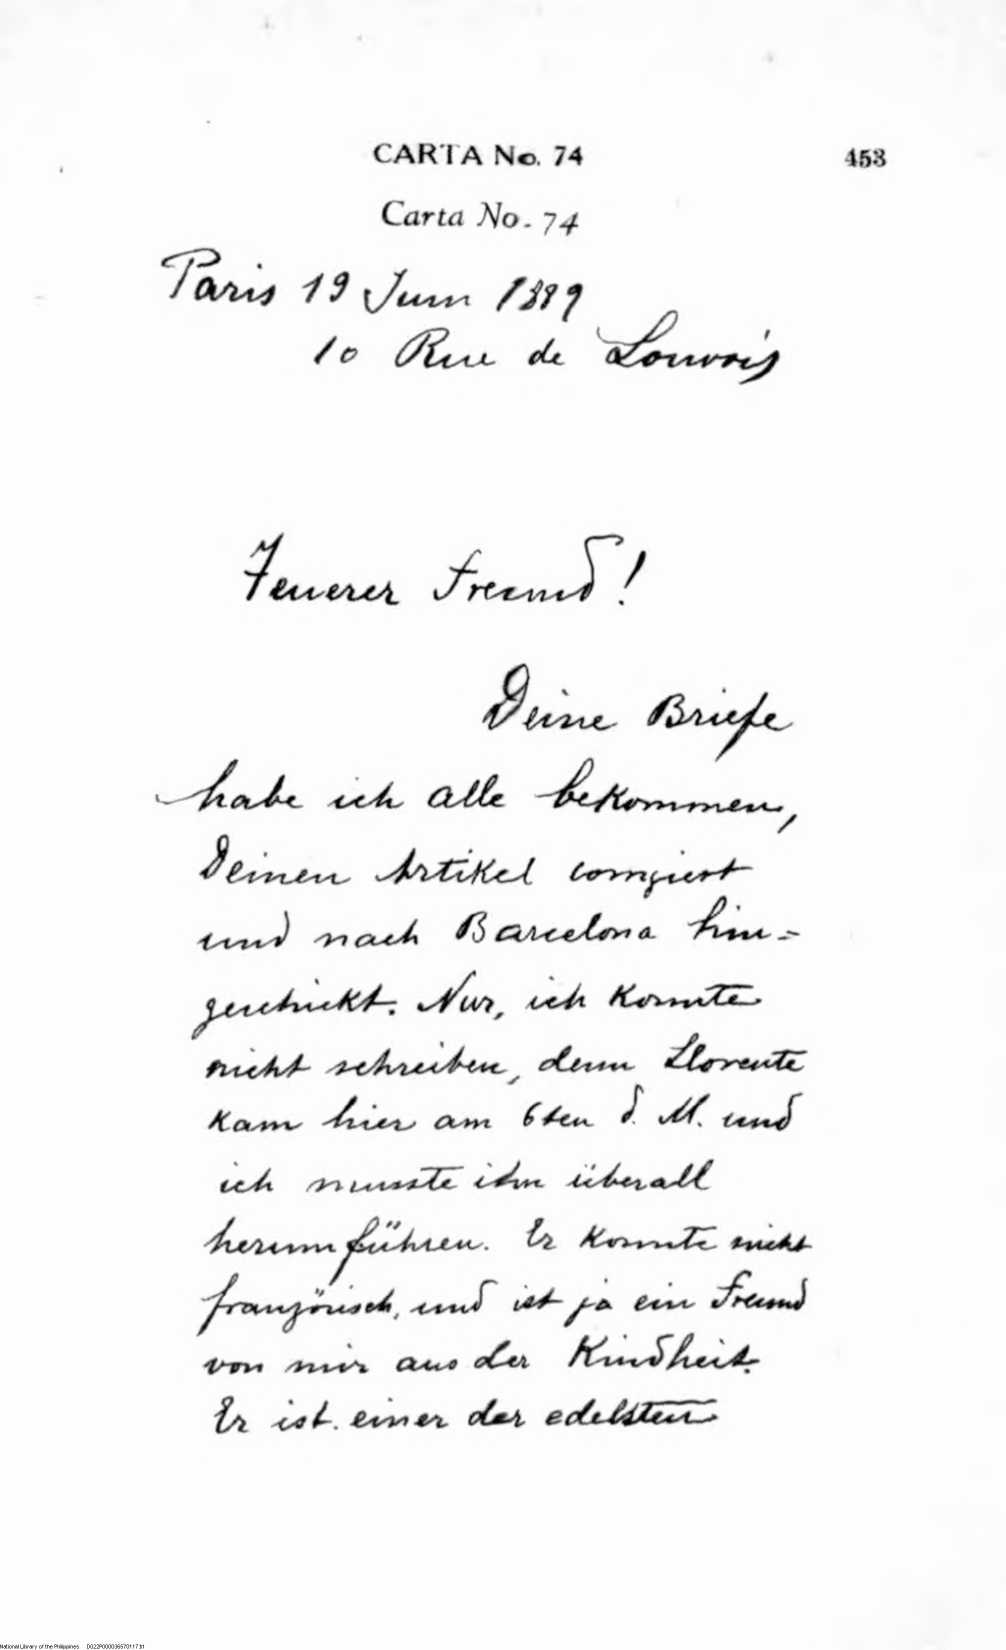 CARTA No. 74
453
Carta No. 74
Paris 19 Juni 1889
10 Rue de Louvois
Teuerer Freund!
Deine Briefe
habe ich alle bekommen,
Deinen Artikel corrigiert
und nach Barcelona hin=
geschickt. Nur, ich konnte
nicht schreiben, denn Llorente
kam hier am 6ten d. M. und
ich musste ihn überall
herumführen. Er konnte nicht
französisch, und ist ja ein Freund
von mir aus der Kindheit.
Er ist einer der edelsten
National Library of the Philippines